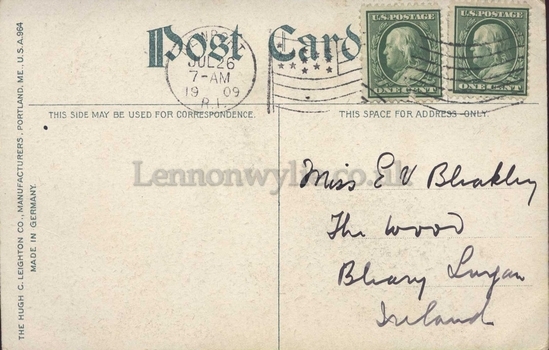 Post Card
JUL 26
7-AM
1909
R.I.
U.S. POSTAGE
ONE CENT
U.S. POSTAGE
ONE CENT
THIS SIDE MAY BE USED FOR CORRESPONDENCE.
THIS SPACE FOR ADDRESS ONLY.
Lennonwylie.co.uk
Miss E V Bleakley
The Wood
Bleary Lurgan
Ireland
THE HUGH C. LEIGHTON CO., MANUFACTURERS, PORTLAND, ME., U.S.A. 964
MADE IN GERMANY.